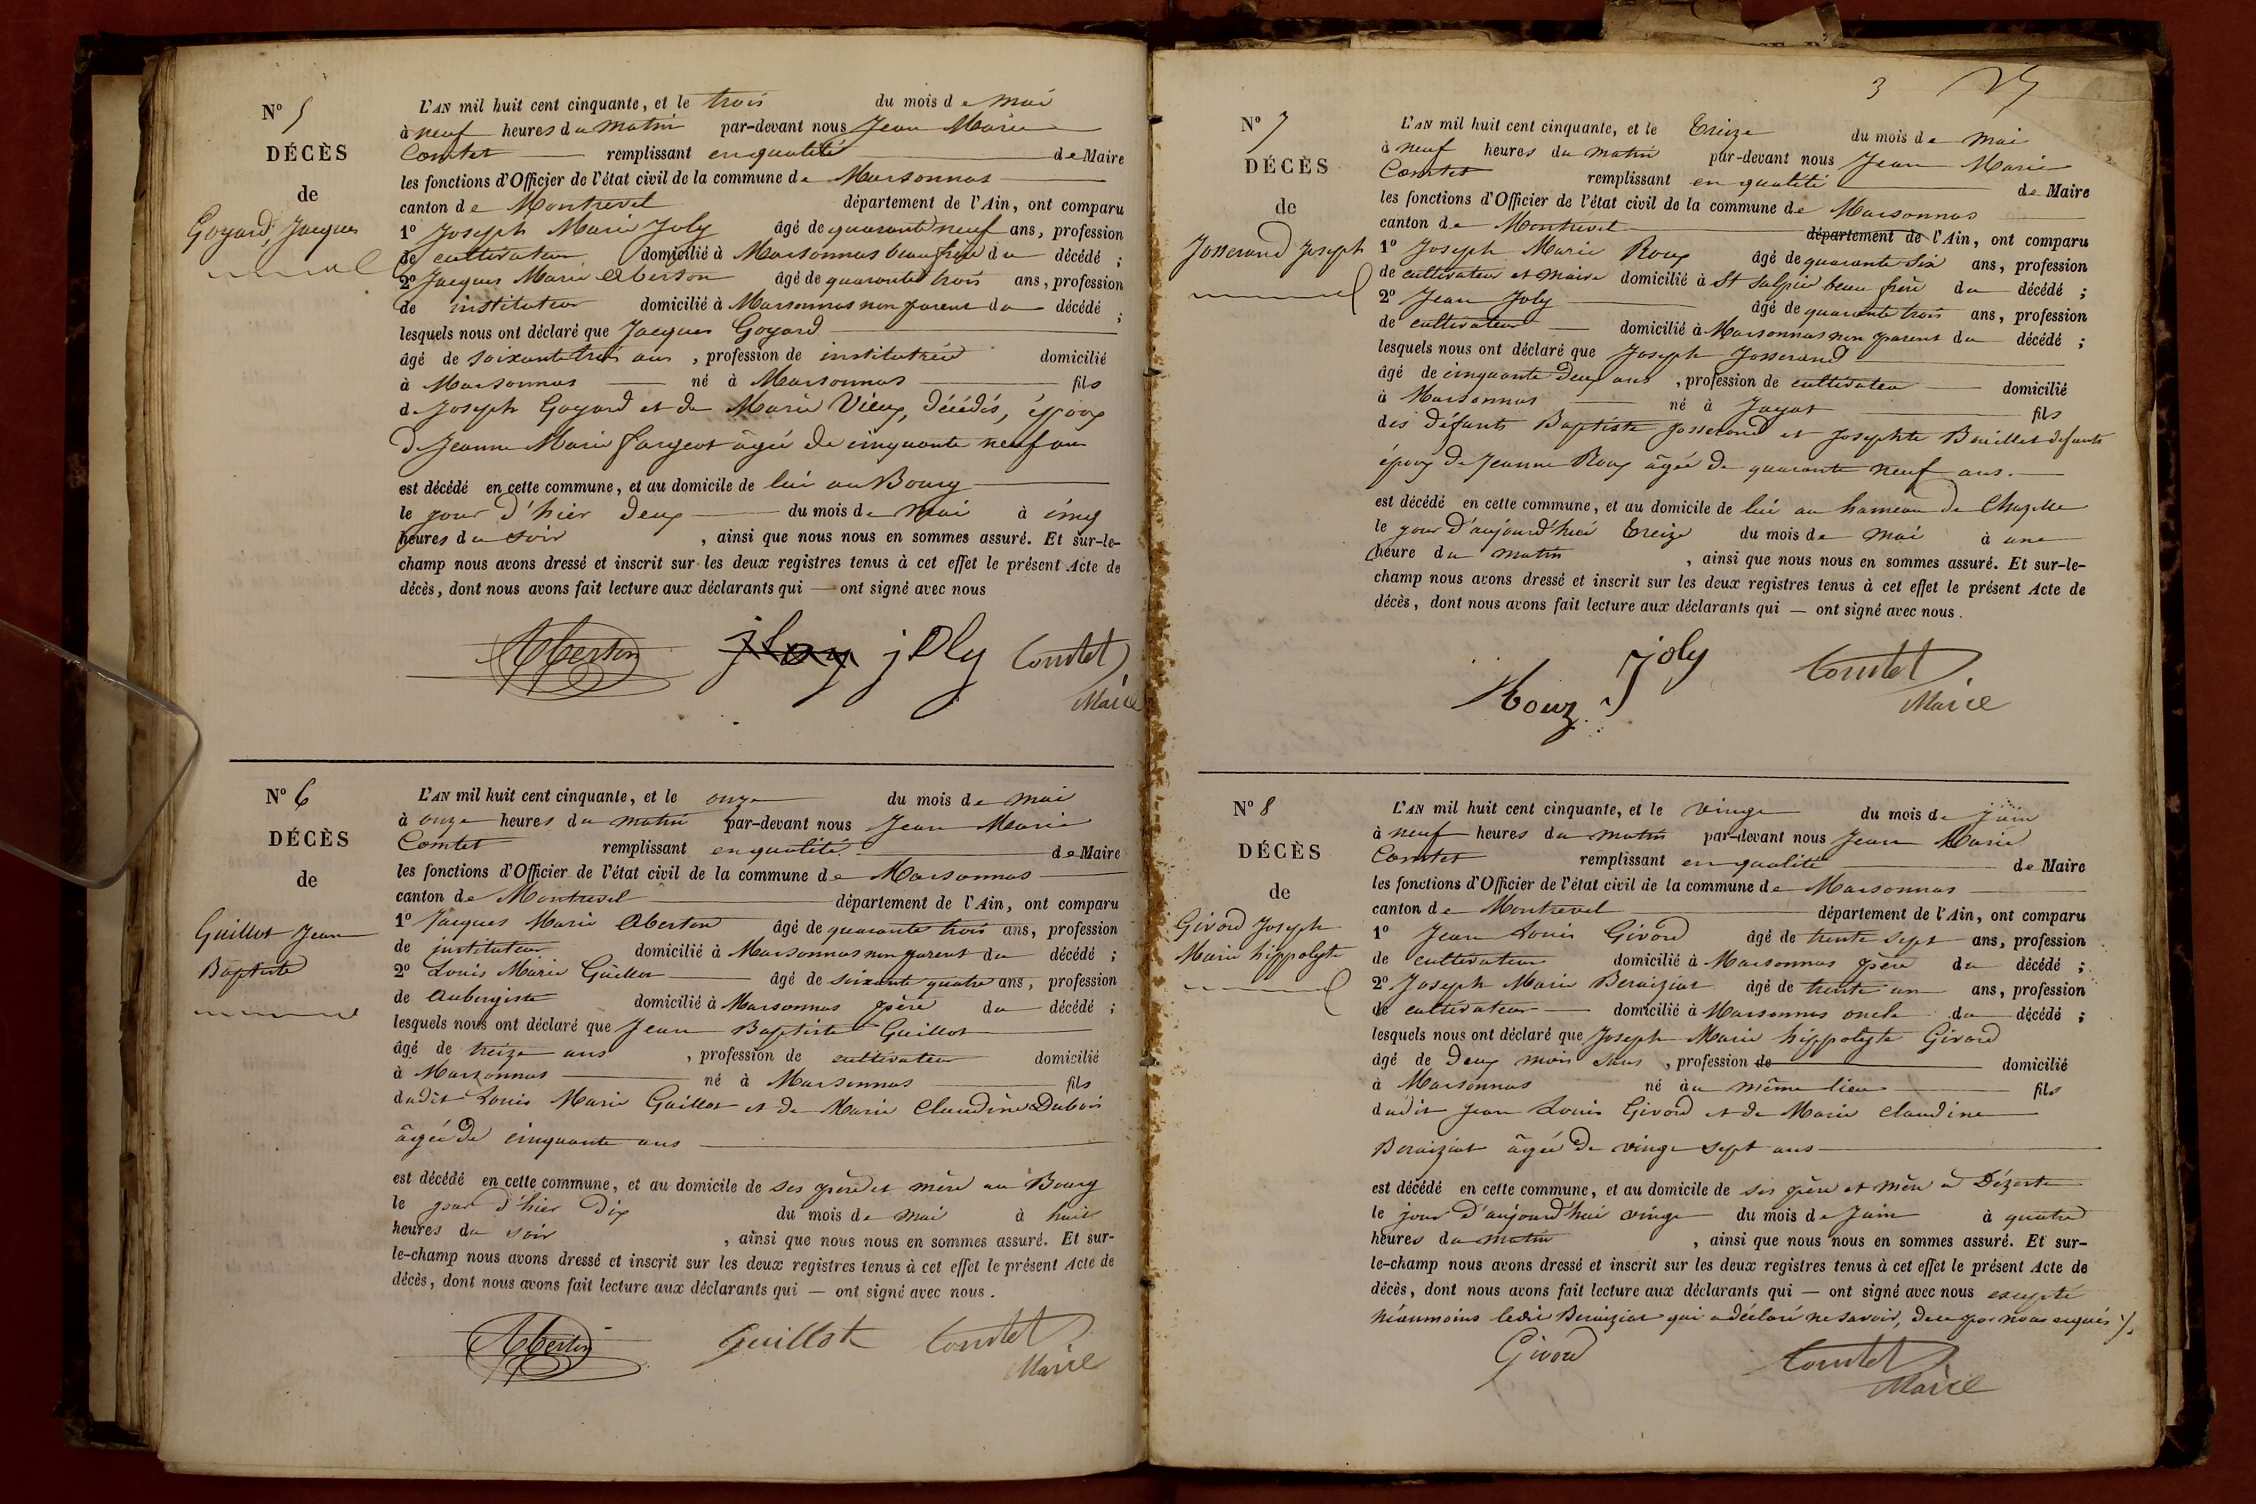 N° 5
DÉCÈS
de
Goyard, Jacques
L'AN mil huit cent cinquante, et le trois du mois de mai
à neuf heures du matin par-devant nous Jean Marie
Comtet remplissant en qualité de Maire
les fonctions d'Officier de l'état civil de la commune de Marsonnas
canton de Montrevel département de l'Ain, ont comparu
1° Joseph Marie Joly âgé de quarante neuf ans, profession
de cultivateur domicilié à Marsonnas beau frère du décédé ;
2° Jacques Marie Aberton âgé de quarante trois ans, profession
de instituteur domicilié à Marsonnas non parent du décédé ;
lesquels nous ont déclaré que Jacques Goyard
âgé de soixante trois ans , profession de domicilié
à Marsonnas né à Marsonnas fils
de Joseph Goyard et de Marie Vieux, décédés, époux
de Jeanne Marie âgée de cinquante neuf ans
est décédé en cette commune, et au domicile de lui au Bourg
le jour d'hier deux du mois de mai à cinq
heures du soir , ainsi que nous nous en sommes assuré. Et sur-le-
champ nous avons dressé et inscrit sur les deux registres tenus à cet effet le présent Acte de
décès, dont nous avons fait lecture aux déclarants qui — ont signé avec nous
Aberton joly Comtet
Maire
N° 6
DÉCÈS
de
Guillot Jean
Baptiste
L'AN mil huit cent cinquante, et le onze du mois de mai
à onze heures du matin par-devant nous Jean Marie
Comtet remplissant en qualité de Maire
les fonctions d'Officier de l'état civil de la commune de Marsonnas
canton de Montrevel département de l'Ain, ont comparu
1° Jacques Marie Aberton âgé de quarante trois ans, profession
de instituteur domicilié à Marsonnas non parent du décédé ;
2° Louis Marie Guillot âgé de soixante quatre ans, profession
de Aubergiste domicilié à Marsonnas père du décédé ;
lesquels nous ont déclaré que Jean Baptiste Guillot
âgé de treize ans , profession de cultivateur domicilié
à Marsonnas né à Marsonnas fils
dudit Louis Marie Guillot et de Marie Claudine Dubois
âgée de cinquante ans
est décédé en cette commune, et au domicile de ses père et mère au Bourg
le jour d'hier dix du mois de mai à huit
heures du soir , ainsi que nous nous en sommes assuré. Et sur-
le-champ nous avons dressé et inscrit sur les deux registres tenus à cet effet le présent Acte de
décès, dont nous avons fait lecture aux déclarants qui — ont signé avec nous.
Aberton Guillot Comtet
Maire
3
N° 7
DÉCÈS
de
Josserand Joseph
L'AN mil huit cent cinquante, et le treize du mois de mai
à neuf heures du matin par-devant nous Jean Marie
Comtet remplissant en qualité de Maire
les fonctions d'Officier de l'état civil de la commune de Marsonnas
canton de Montrevel département de l'Ain, ont comparu
1° Joseph Marie Roux âgé de quarante six ans, profession
de cultivateur et maire domicilié à St Sulpice beau frère du décédé ;
2° Jean Joly âgé de quarante trois ans, profession
de cultivateur domicilié à Marsonnas non parent du décédé ;
lesquels nous ont déclaré que Joseph Josserand
âgé de cinquante deux ans , profession de cultivateur domicilié
à Marsonnas né à Jayat fils
des défunts Baptiste Josserand et Josephte Bouillet défunts
époux de Jeanne Roux âgée de quarante neuf ans.
est décédé en cette commune, et au domicile de lui au hameau de Chazelle
le jour d'aujourd'hui treize du mois de mai à une
heure du matin , ainsi que nous nous en sommes assuré. Et sur-le-
champ nous avons dressé et inscrit sur les deux registres tenus à cet effet le présent Acte de
décès, dont nous avons fait lecture aux déclarants qui — ont signé avec nous.
Roux joly Comtet
Maire
N° 8
DÉCÈS
de
Givord Joseph
Marie hippolyte
L'AN mil huit cent cinquante, et le vingt du mois de juin
à neuf heures du matin par-devant nous Jean Marie
Comtet remplissant en qualité de Maire
les fonctions d'Officier de l'état civil de la commune de Marsonnas
canton de Montrevel département de l'Ain, ont comparu
1° Jean Louis Givord âgé de trente sept ans, profession
de cultivateur domicilié à Marsonnas père du décédé ;
2° Joseph Marie Beraiziat âgé de trente un ans, profession
de cultivateur domicilié à Marsonnas oncle du décédé ;
lesquels nous ont déclaré que Joseph Marie hippolyte Givord
âgé de deux mois , profession de domicilié
à Marsonnas né au même lieu fils
dudit Jean Louis Givord et de Marie Claudine
Beraiziat âgée de vingt sept ans
est décédé en cette commune, et au domicile de ses père et mère à Dézerte
le jour d'aujourd'hui vingt du mois de Juin à quatre
heures du matin , ainsi que nous nous en sommes assuré. Et sur-
le-champ nous avons dressé et inscrit sur les deux registres tenus à cet effet le présent Acte de
décès, dont nous avons fait lecture aux déclarants qui — ont signé avec nous excepté
néanmoins ledit Beraiziat qui a déclaré ne savoir, de ce par nous enquis
Givord Comtet
Maire